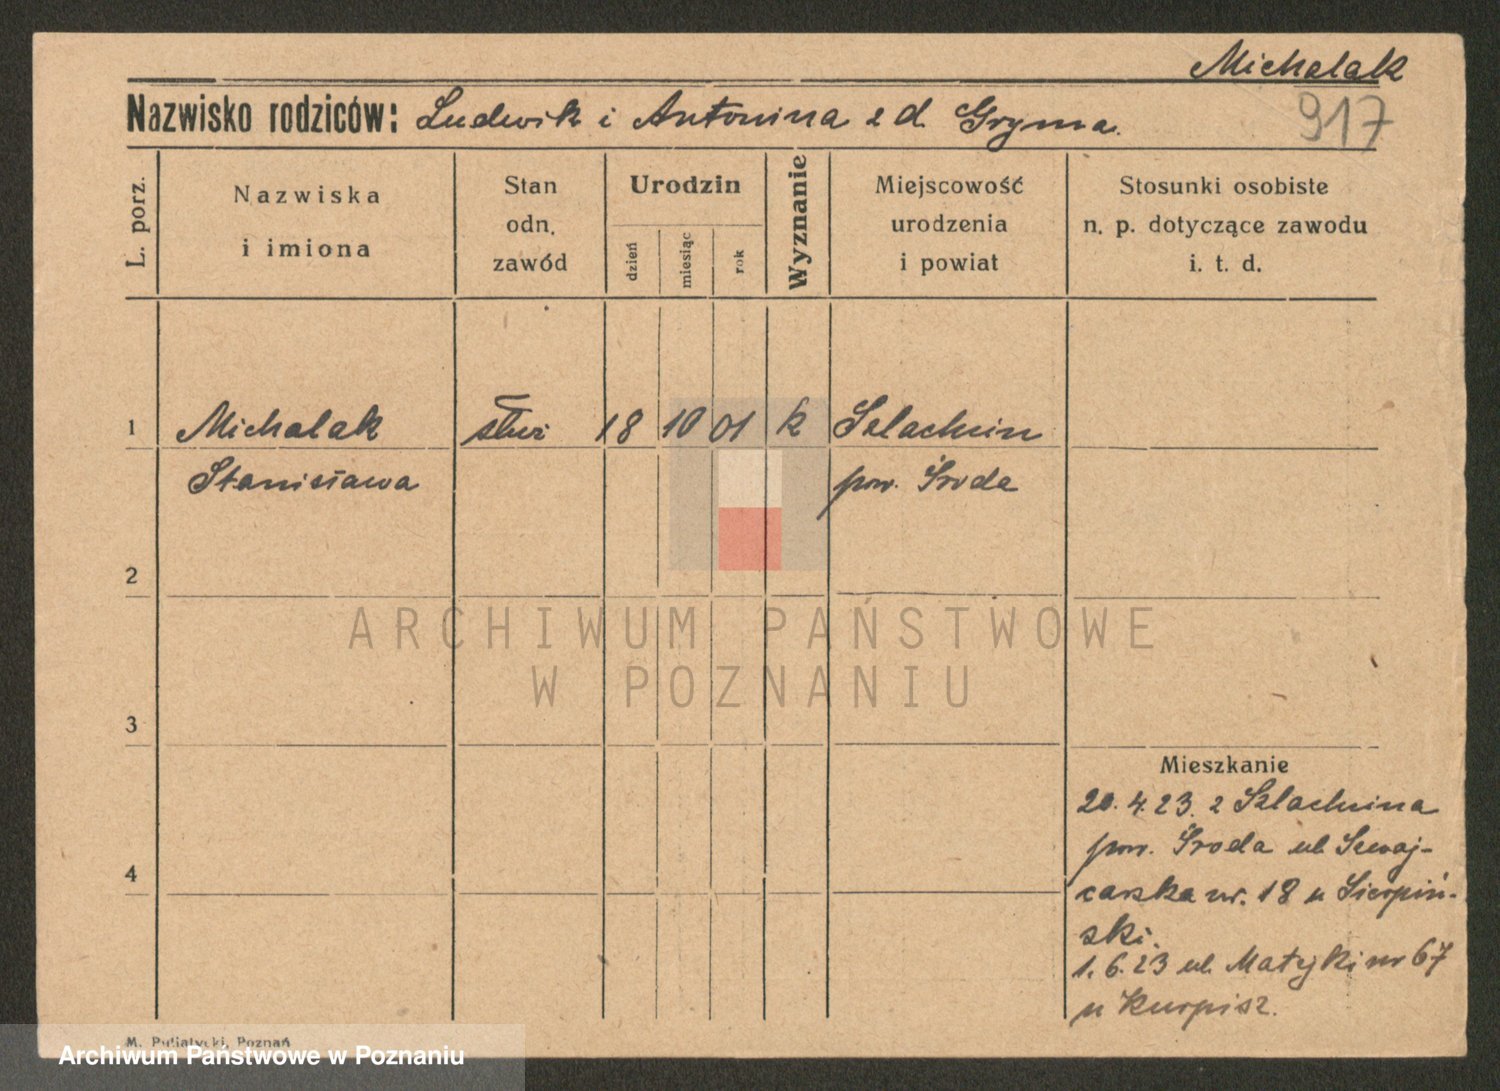 Michalak
Nazwisko rodziców: Ludwik i Antonina z d. Gryma.
917
L. porz.
Nazwiska
i imiona
Stan
odn.
zawód
Urodzin
dzień
miesiąc
rok
Wyznanie
Miejscowość
urodzenia
i powiat
Stosunki osobiste
n. p. dotyczące zawodu
i. t. d.
1 Michalak 18 10 01 k Szlachcin
Stanisława pow. Środa
2
ARCHIWUM PAŃSTWOWE
W POZNANIU
3
Mieszkanie
20.4.23. z Szlachcina
pow. Środa ul. Szwaj-
carska nr. 18 u Sierpiń-
ski.
1.6.23 ul. Matejki nr 67
u Kurpisz.
4
M. Putiatycki, Poznań
Archiwum Państwowe w Poznaniu